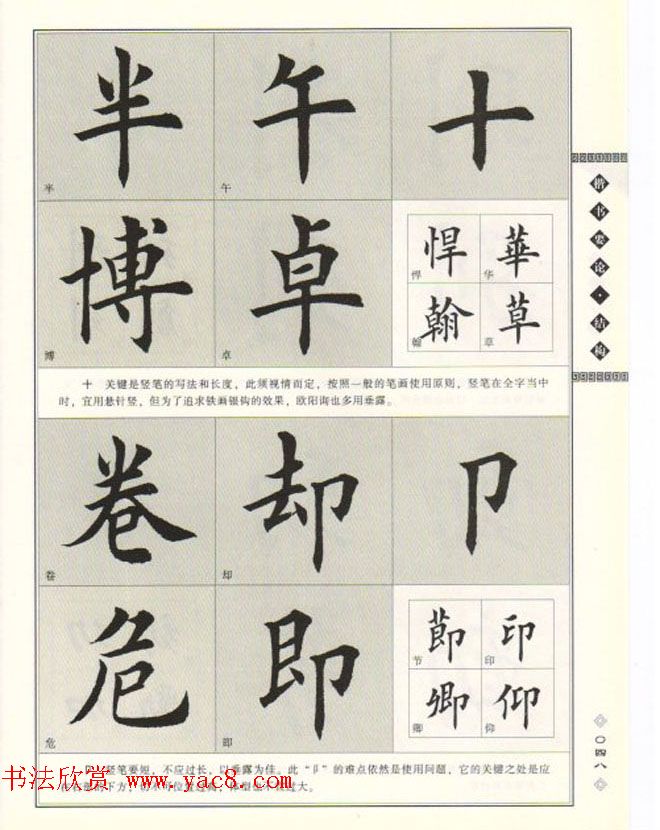 半 午 十
半 午
博 卓 悍 華
悍 华
翰 草
翰 草
博 卓
十 关键是竖笔的写法和长度，此须视情而定，按照一般的笔画使用原则，竖笔在全字当中
时，宜用悬针竖，但为了追求铁画银钩的效果，欧阳询也多用垂露。
卷 却 卩
卷 却
危 即 節 印
节 印
卿 仰
卿 仰
危 即
竖笔要短，不应过长，以垂露为佳。此“卩”的难点依然是使用问题，它的关键之处是应
书法欣赏 www.yac8.com
楷书要论·结构
〇四八